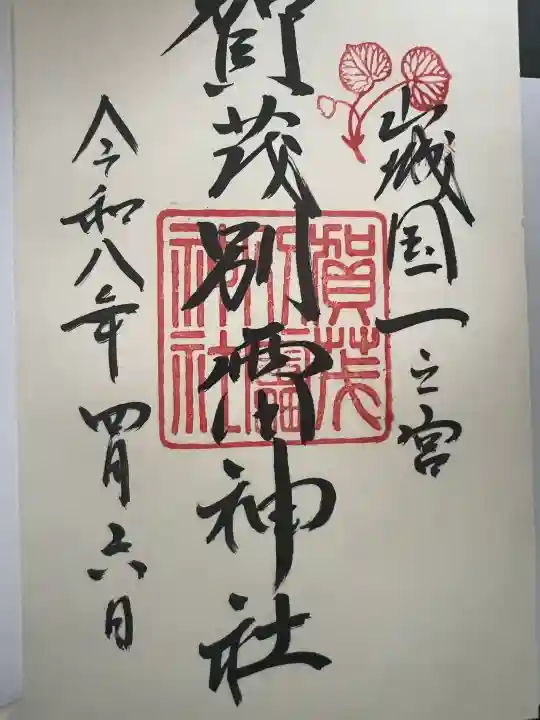 山城国一之宮
賀茂別雷神社
賀茂
別雷
神社
令和八年四月六日